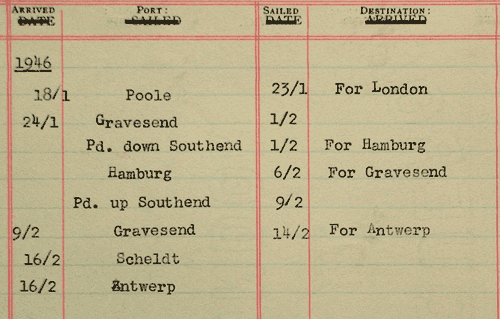 ARRIVED PORT: SAILED DESTINATION:
DATE SAILED DATE ARRIVED
1946
18/1 Poole 23/1 For London
24/1 Gravesend 1/2
Pd. down Southend 1/2 For Hamburg
Hamburg 6/2 For Gravesend
Pd. up Southend 9/2
9/2 Gravesend 14/2 For Antwerp
16/2 Scheldt
16/2 Antwerp